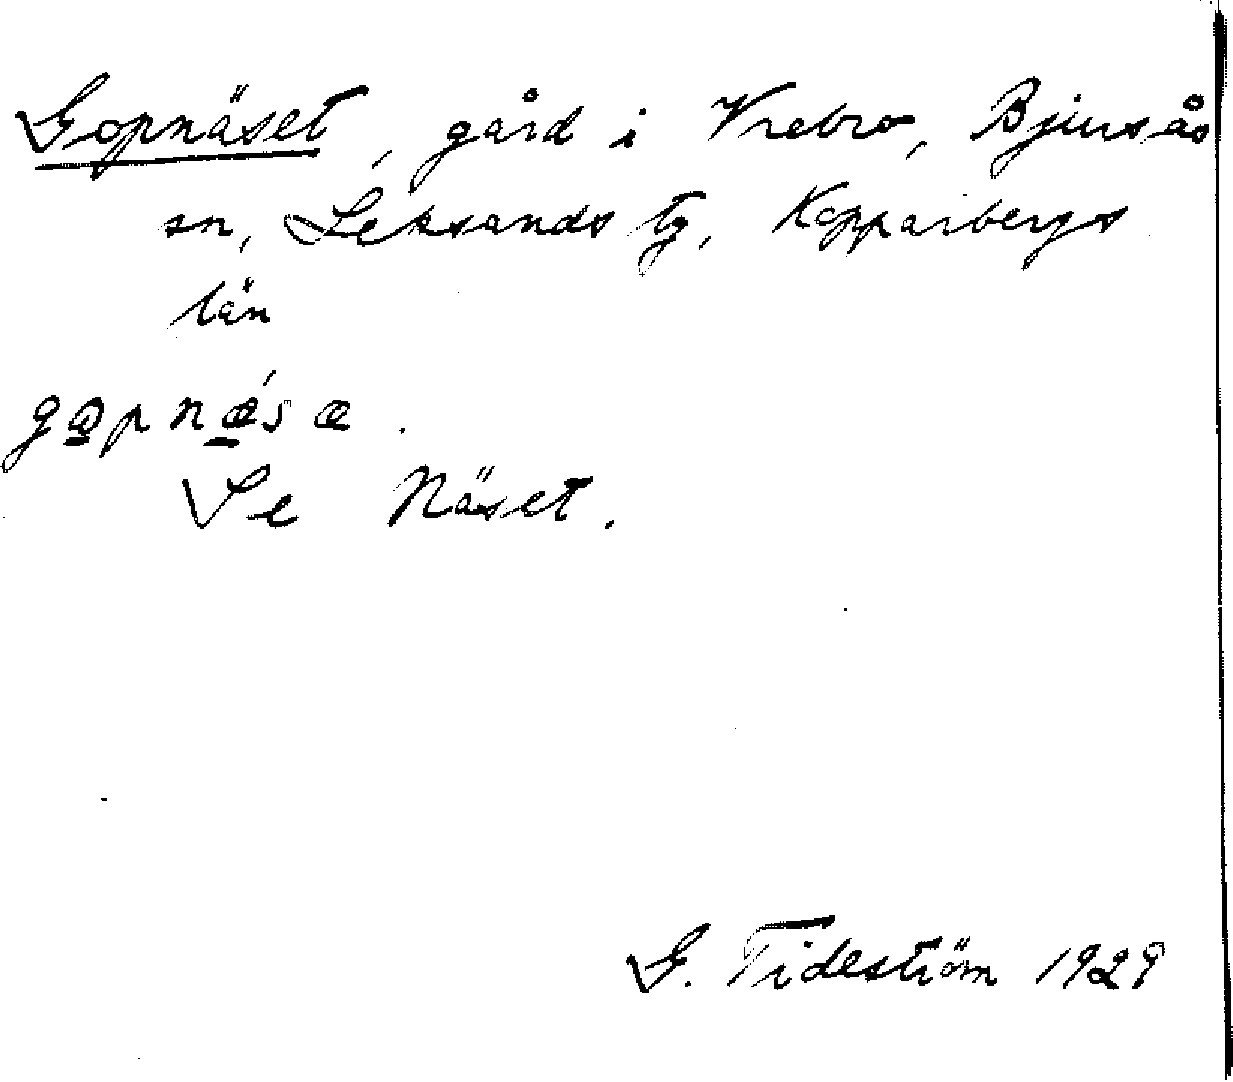 Gopnäset, gård i Vrebro, Bjursås
sn, Leksands tg, Kopparbergs
län
go̲pnǽ̲sæ.
Se Näset.
G. Tideström 1929